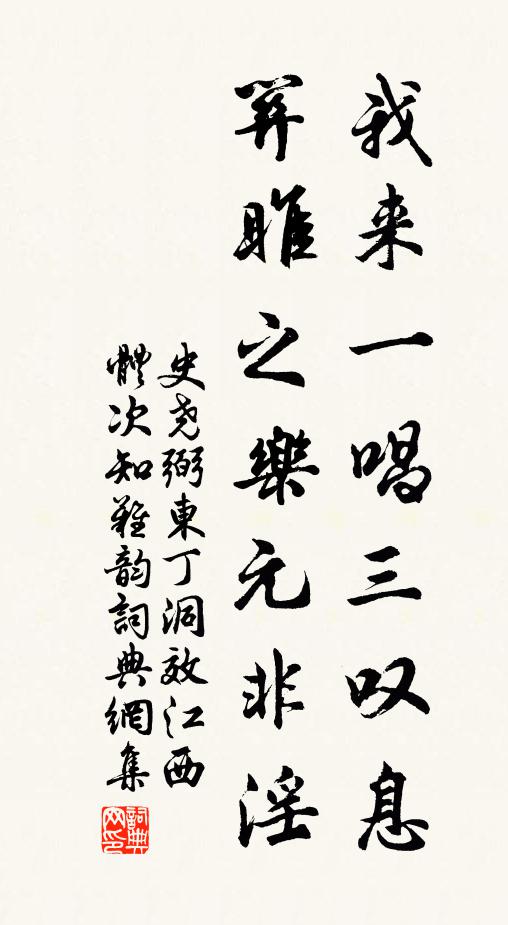 我来一唱三叹息
關雎之樂元非淫
史尧弼東丁洞效江西
體次知難韵詞典網集
詞典网印